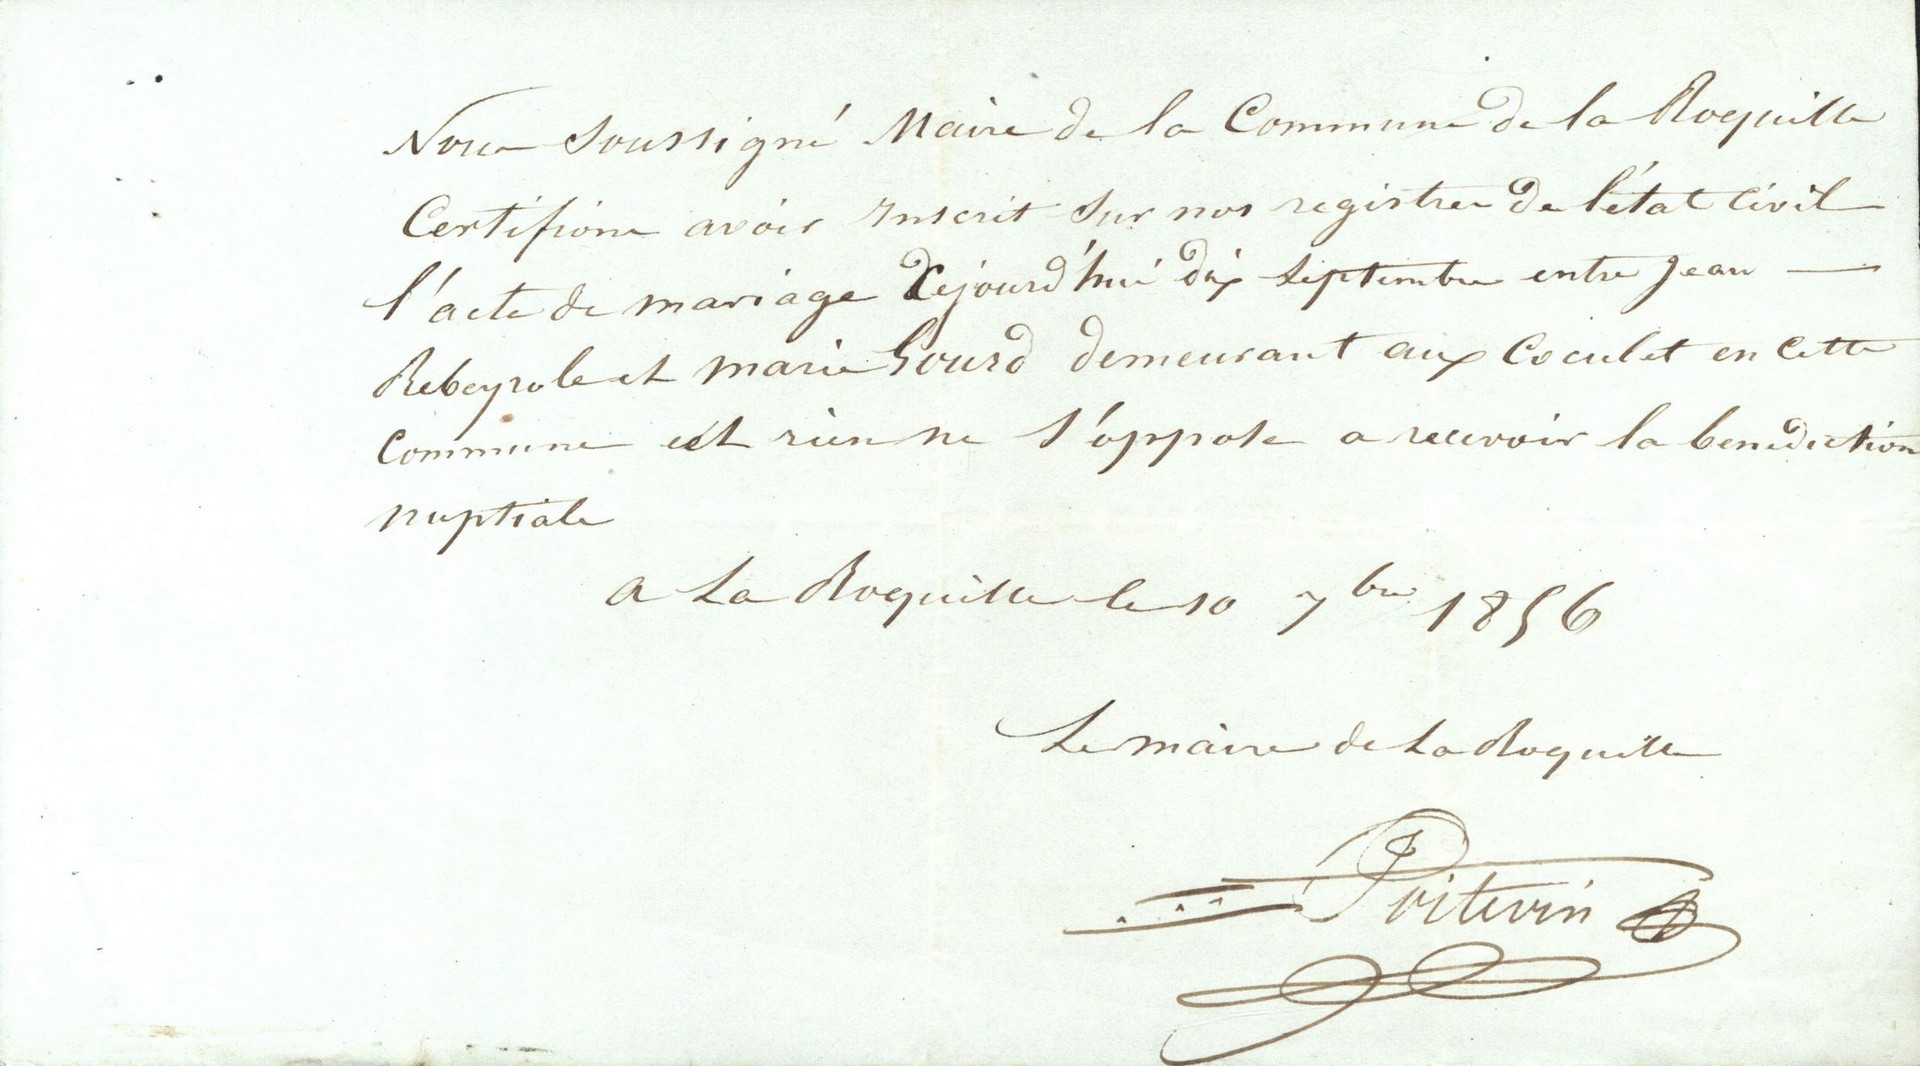 Nous Soussigné Maire de la Commune de la Roquille
Certifions avoir Inscrit Sur nos registres de l'état Civil
l'acte de mariage Dejourd'hui dix Septembre entre Jean —
Rebeyrole et marie Gourd demeurant aux Coculet en cette
Commune et rien ne S'oppose a recevoir la benediction
nuptiale
a La Roquille le 10 7bre 1856
Le maire de La Roquille
Poitevin